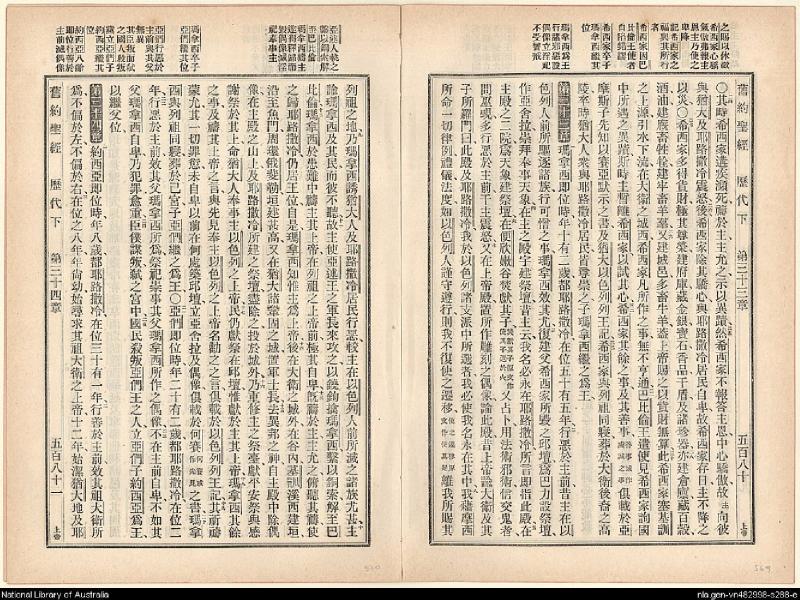 舊約聖經 歷代下 第三十三章 五百八十 上帝
〇其時希西家遘疾瀕死禱於主主允之示以異蹟然希西家不報答主恩中心驕傲故主向彼
與猶大及耶路撒冷震怒後希西家除其驕心與耶路撒冷居民自卑故希西家存日主不降之
以災〇希西家多得貨財極其尊榮建府庫藏金銀寶石香品干盾及諸珍器亦建倉廩藏百穀
酒油建廐畜牲牷建牢畜羊羣又建城邑多畜牛羊蓋上帝賜之以貨財無算此希西家塞基訓
之上源引水下流在大衛之城西希西家凡所作之事無不亨通巴比倫王遣使見希西家詢國
中所遇之異蹟斯時主暫離希西家以試其心希西家其餘之事及其善事俱載於亞
摩斯子先知以賽亞默示之書及猶大以色列列王記希西家與列祖同寢葬於大衛後裔之高
陵卒時猶大人衆與耶路撒冷居民皆尊崇之子瑪拿西繼之爲王
第三十三章 瑪拿西即位時年十有二歲都耶路撒冷在位五十有五年行惡於主前昔主在以
色列人前所驅逐諸族行可憎之事瑪拿西效其尤復建父希西家所毀之邱壇爲巴力設祭壇
作亞舍拉崇拜奉事天象在主之殿宇建祭壇昔主云我名必永在耶路撒冷所言即指此殿在
主殿之二院爲天象建祭壇在便欣嫩谷焚獻其子又占卜用法術邪術信交鬼者
問巫覡多行惡於主前干主震怒又在上帝殿置所作雕刻之偶像論此殿上帝曾諭大衛及其
子所羅門曰此殿及耶路撒冷我於以色列諸支派中所選者我必使我名永在其中我藉摩西
所命一切律例禮儀法度如以色列人謹守遵行則我不復使之遷移離我所賜其
列祖之地乃瑪拿西誘猶大人及耶路撒冷居民行惡較主在以色列人前所滅之諸族尤甚主
諭瑪拿西及其民而彼不聽故主使亞述王之軍長來攻之以鐃鉤擒瑪拿西繫以銅索解至巴
比倫瑪拿西於患難中禱主其上帝在列祖之上帝前極其自卑旣禱於主主允之俯聽其禱使
之歸耶路撒冷仍居王位自是瑪拿西知惟主爲上帝後在大衛之城外在谷內基訓溪西建垣
沿至魚門周環俄斐勒垣建甚高又在猶大諸鞏固之城置軍士長去異邦之神自主殿中除偶
像在主殿之山上及耶路撒冷所建之祭壇盡除之投於城外乃重修主之祭臺獻平安祭與感
謝祭於其上命猶大人奉事主以色列之上帝民仍獻祭在邱壇惟獻於主其上帝瑪拿西其餘
之事及禱其上帝之言與先見奉主以色列之上帝名勸之之言俱載於以色列列王記其祈禱
蒙允其一切罪愆未自卑以前在何處築邱壇立亞舍拉及偶像俱載於何賽之書瑪拿
西與列祖同寢葬於己宮子亞們繼之爲王〇亞們即位時年二十有二歲都耶路撒冷在位二
年行惡於主前效其父瑪拿西所爲祭祀崇事其父瑪拿西所作之偶像不在主前自卑不如其
父瑪拿西自卑乃犯罪愈重臣僕謀叛弒之宮中國民殺叛亞們王之人立亞們子約西亞爲王
以繼父位
第三十四章 約西亞即位時年八歲都耶路撒冷在位三十有一年行善於主前效其祖大衛所
爲不偏於左不偏於右在位之八年年尚幼始尋求其祖大衛之上帝十二年始潔猶大地及耶
舊約聖經 歷代下 第三十四章 五百八十一 上帝
National Library of Australia
nla.gen-vn482998-s288-e